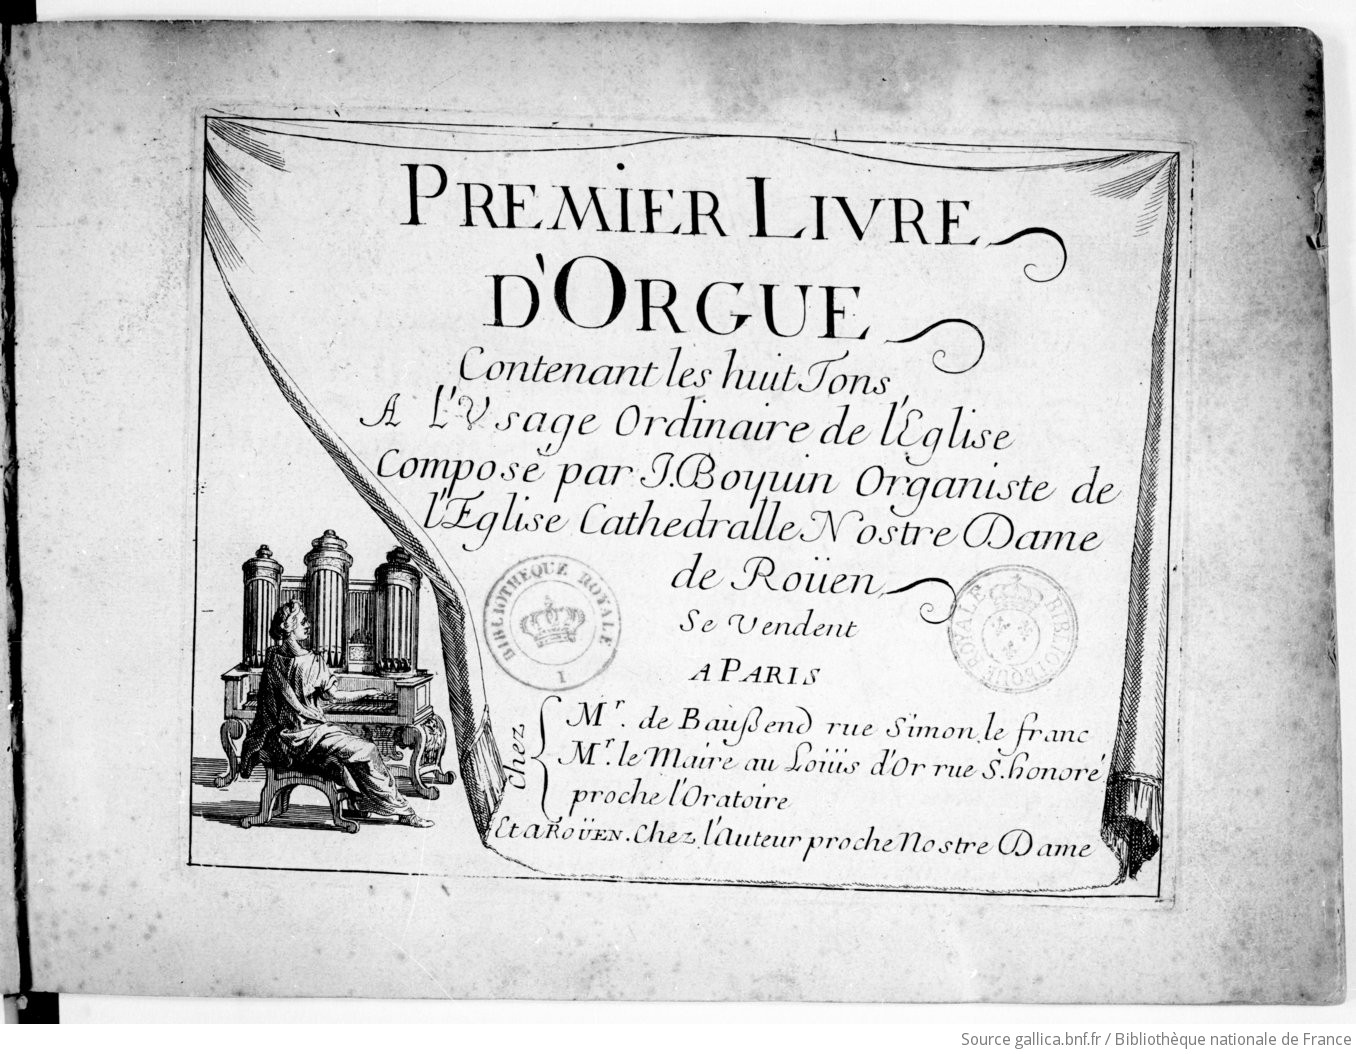 PREMIER LIVRE
D'ORGUE
Contenant les huit Tons,
A l'Usage Ordinaire de l'Eglise
Composé par J. Boyuin Organiste de
l'Eglise Cathedralle Nostre Dame
de Roüen,
BIBLIOTHEQUE ROYALE
I
BIBLIOTHEQUE ROYALE
Se Vendent
A PARIS
Chez
Mr. de Baußend rue Simon le franc
Mr. le Maire au Loüis d'Or rue S. honoré
proche l'Oratoire
Et A ROÜEN. Chez l'Auteur proche Nostre Dame
Source gallica.bnf.fr / Bibliothèque nationale de France